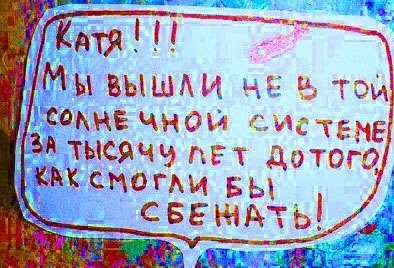 КАТЯ!!!
МЫ ВЫШЛИ НЕ В ТОЙ
СОЛНЕЧНОЙ СИСТЕМЕ
ЗА ТЫСЯЧУ ЛЕТ ДОТОГО,
КАК СМОГЛИ БЫ
СБЕЖАТЬ!